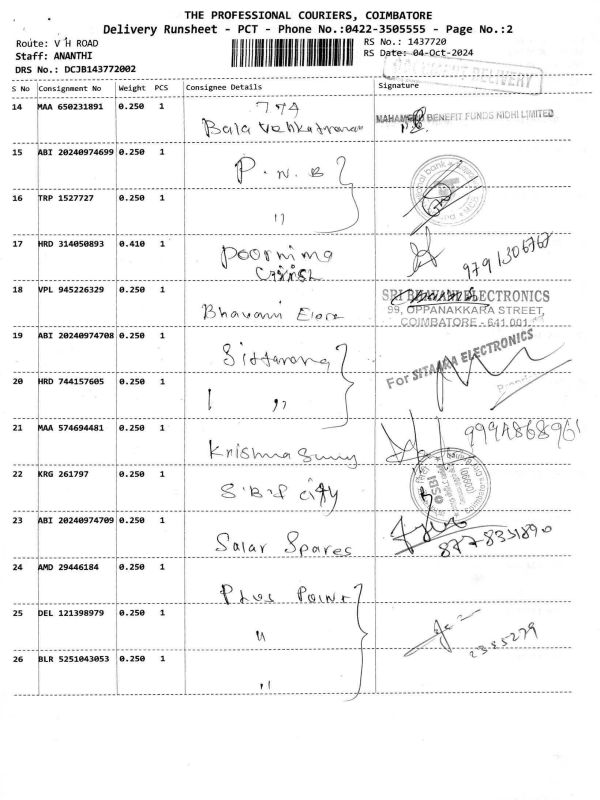 THE PROFESSIONAL COURIERS, COIMBATORE
Delivery Runsheet - PCT - Phone No.:0422-3505555 - Page No.:2
Route: V H ROAD
RS No.: 1437720
Staff: ANANTHI
RS Date: 04-Oct-2024
DRS No.: DCJB143772002
DELIVERY
S No Consignment No Weight PCS Consignee Details Signature
14 MAA 650231891 0.250 1
BENEFIT FUNDS NIDHI LIMITED
15 ABI 20240974699 0.250 1
P.N.B
16 TRP 1527727 0.250 1
''
17 HRD 314050893 0.410 1
Poornima
9791306767
18 VPL 945226329 0.250 1
Bhavani
SRI BHAVANI ELECTRONICS
99, OPPANAKKARA STREET,
COIMBATORE - 641 001
19 ABI 20240974708 0.250 1
For SITAARA ELECTRONICS
20 HRD 744157605 0.250 1
''
21 MAA 574694481 0.250 1
Krishna
22 KRG 261797 0.250 1
City
23 ABI 20240974709 0.250 1
Salar Spares
8778331890
24 AMD 29446184 0.250 1
Plus Point
25 DEL 121398979 0.250 1
''
26 BLR 5251043053 0.250 1
''